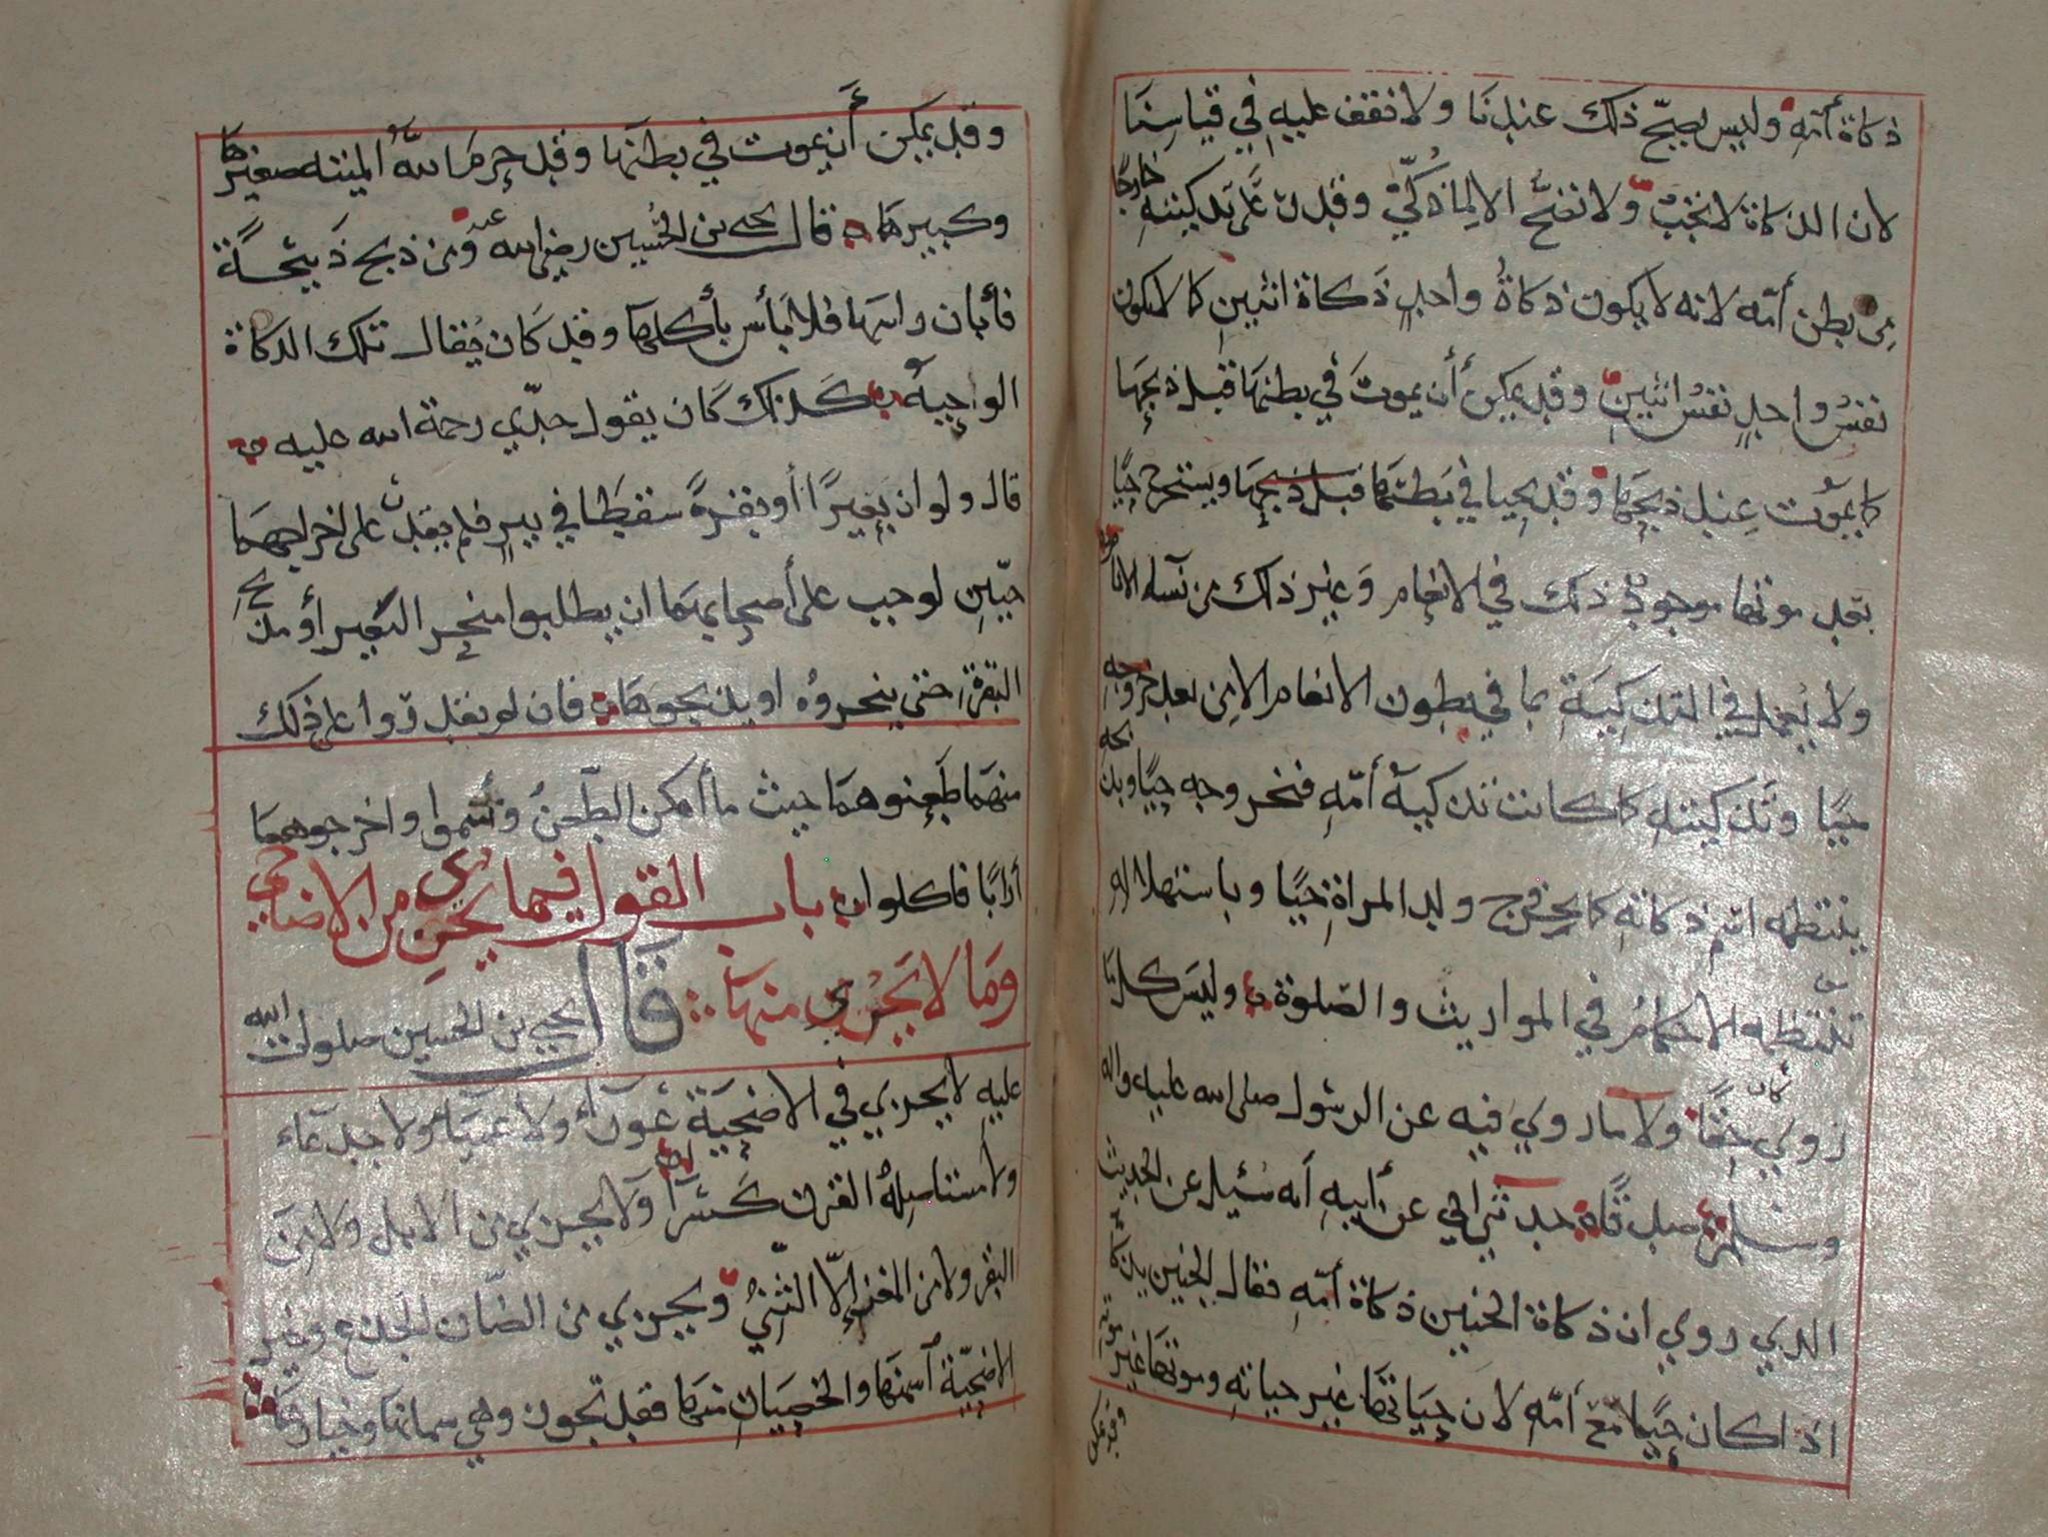 ذكاة أمّهِ وليس يصحّ ذلك عندنَا ولا نقف عليهِ في قياسِنَا
لان الذكاة لا تجبُ ولا تصحُّ الا لِمَا ذُكّيَ وقدرَ عَلَى تذكيتهِ خارجًا
مِن بطن أمّه لانه لا يكون ذكاةُ واحدٍ ذَكاة اثنينِ كما لا يكون
نفسُ واحدٍ نفسُ اثنينِ وقد يمكن أن يموتَ في بطنهَا قبل ذبحِهَا
كما يموت عِند ذبحِهَا وقد يحيا في بَطنهَا قبل ذبحِهَا ويستخرج حيًا
بعد موتها موجودٌ ذلك في الانعام وَغير ذلك من نسآء الانام
ولا يُعمل في التذكيَةِ بما في بطون الانعام الا من بعد خروجهِ
حيًا وتَذكيتهِ كما كانت تذكية أمّهِ فنخروجه حيًا وبذبحه
ينتظمه اسم ذكاتهِ كما بخروج ولد المراةِ حيًا وباستهلاله
تنتظمه الاحكامُ في المواريث والصّلوة وليسَ كلمَا
رُوي كان حَقًا ولا ما روي فيه عن الرسُول صلى الله عليه واله
وسلم صدقًا حدثني ابي عن أبيهِ أنه سُئِل عن الحديث
الذي روي ان ذكاة الجنين ذكاة أمّهِ فقال الجنين يذكَّا
اذا كان حيًا مع أمّهِ لان حيَاتهَا غير حياتهِ وموتهَا غير موته
وقد يمكن
وقد يمكن أن يموت في بطنهَا وقد حرمَ اللهُ الميتة صغيرهَا
وكبيرهَا قال يحيى بن الحُسين رضي الله عنه ومن ذبح ذبيحَةً
فأبان راسهَا فلا بَأس بأكلهَا وقد كَان يُقال تلك الذكاة
الواحِيةُ كذلك كَان يقول جدّي رحمة الله عليه
قال ولو ان بَعِيرًا أو بقرةً سقطَا في بيرٍ فلم يقدرُ على اخراجهمَا
حيّينِ لوجب على أصحابهمَا ان يطلبوا منحر البَعير أو مذبح
البَقرةِ حتى ينحروُه او يذبحوهَا فان لم يقدروا على ذلك
منهمَا طَعنوهمَا حيث ما أمكن الطّعنُ وسَموا واخرجوهمَا
أرابًا فاكلوا باب القول فيما يجزي من الاضاحي
وَمَا لا يَجْزي منهَا قَال يحيى بن الحسين صلوات الله
عليهِ لا يجزي في الاضحيَةِ عَورآء ولا عميَآء ولا جدعَآء
ولا مستاصِلةُ القرن كَسْرًا ولا يجزي من الابل ولا مِن
البقر ولا من المعز إلّا الثّنيُّ ويجزي من الضّان الجذع وخير
الاضحيّة أسمنهَا والخصيَان منهَا فقد تجوز وهي سمانهَا وخيارهَا